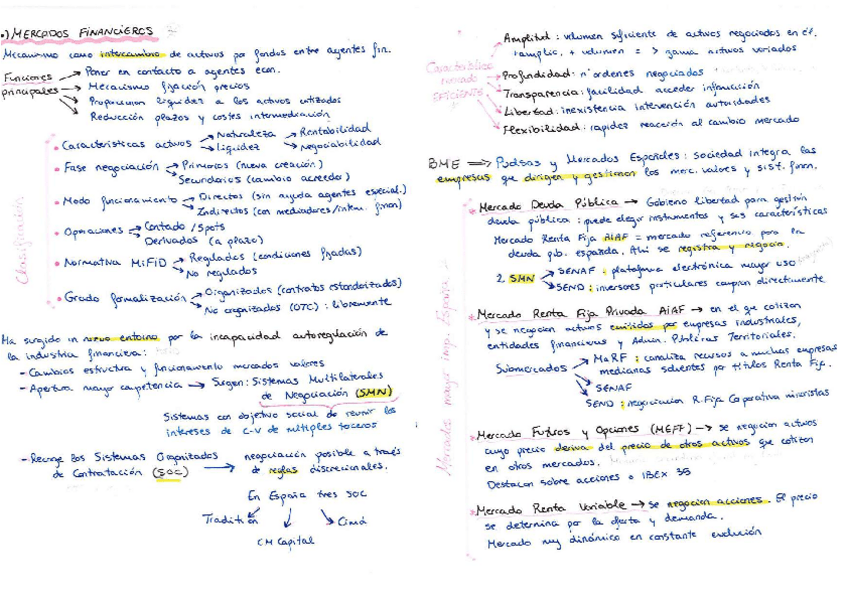 •) MERCADOS FINANCIEROS
Mecanismo como intercambio de activos por fondos entre agentes fin.
Funciones principales → Poner en contacto a agentes econ.
→ Mecanismo fijación precios
→ Proporcionan liquidez a los activos utilizados
→ Reducción plazos y costes intermediación
Clasificación
• Características activos → Naturaleza → Rentabilidad
→ Liquidez → Negociabilidad
• Fase negociación → Primarios (nueva creación)
→ Secundarios (cambio acreedor)
• Modo funcionamiento → Directos (sin ayuda agentes especial.)
→ Indirectos (con mediadores/interm. finan)
• Operaciones → Contado / Spots
→ Derivados (a plazo)
• Normativa MiFID → Regulados (condiciones fijadas)
→ No regulados
• Grado formalización → Organizados (contratos estandarizados)
→ No organizados (OTC): libremente
Ha surgido un nuevo entorno por la incapacidad autoregulación de
la industria financiera:
- Cambios estructura y funcionamiento mercados valores
- Apertura mayor competencia → Surgen: Sistemas Multilaterales
de Negociación (SMN)
Sistemas con objetivo social de reunir los
intereses de C-V de múltiples terceros
- Recoge los Sistemas Organizados
de Contratación (SOC) → negociación posible a través
de reglas discrecionales.
En España tres SOC
Tradition
CM Capital
Cima
Características mercado EFICIENTE
→ Amplitud: volumen suficiente de activos negociados en él.
+ amplic. + volumen => gama activos variados
→ Profundidad: nº ordenes negociados
→ Transparencia: facilidad acceder información
→ Libertad: inexistencia intervención autoridades
→ Flexibilidad: rapidez reacción al cambio mercado
BME => Bolsas y Mercados Españoles: sociedad integra las
empresas que dirigen y gestionan los merc. valores y sist. finan.
Mercados mayor imp. España
• Mercado Deuda Pública → Gobierno libertad para gestión
deuda pública: puede elegir instrumentos y sus características
Mercado Renta Fija AIAF = mercado referencia para la
deuda pub. española. Ahí se registra y negocia.
2 SMN → SENAF: plataforma electrónica mayor uso
→ SEND: inversores particulares compran directamente
• Mercado Renta Fija Privada AIAF → en el que cotizan
y se negocian activos emitidos por empresas industriales,
entidades financieras y Admin. Públicas Territoriales.
Submercados → MaRF: canaliza recursos a muchas empresas
medianas solventes por títulos Renta Fija.
→ SENAF
SEND: negociación R. Fija Corporativa minoristas
• Mercado Futuros y Opciones (MEFF) → se negocian activos
cuyo precio deriva del precio de otros activos que cotizan
en otros mercados.
Destacan sobre acciones o IBEX 35
• Mercado Renta Variable → Se negocian acciones. El precio
se determina por la oferta y demanda.
Mercado muy dinámico en constante evolución